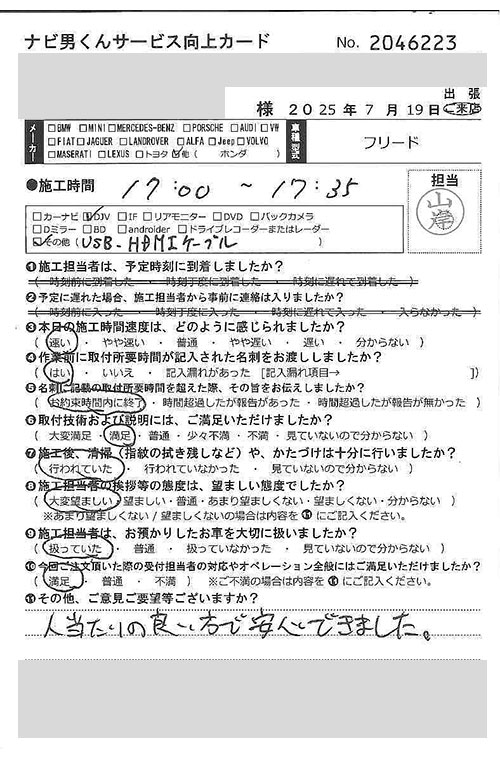 ナビ男くんサービス向上カード No. 2046223
出 張
様 2025年 7月 19日 ご来店
メーカー □BMW □MINI □MERCEDES-BENZ □PORSCHE □AUDI □VW
□FIAT □JAGUER □LANDROVER □ALFA □Jeep □VOLVO
□MASERATI □LEXUS □トヨタ □他 ( ホンダ )
車種型式 フリード
●施工時間 17:00 ~ 17:35
担当
山岸
□カーナビ □DJV □IF □リアモニター □DVD □バックカメラ
□Dミラー □BD □androider □ドライブレコーダーまたはレーダー
□その他 ( USB-HDMIケーブル )
❶施工担当者は、予定時刻に到着しましたか?
( 時刻前に到着した ・ 時刻丁度に到着した ・ 時刻に遅れて到着した )
❷予定に遅れた場合、施工担当者から事前に連絡は入りましたか?
( 時刻前に入った ・ 時刻丁度に入った ・ 時刻に遅れて入った ・ 入らなかった )
❸本日の施工時間速度は、どのように感じられましたか?
( 速い ・ やや速い ・ 普通 ・ やや遅い ・ 遅い ・ 分からない )
❹作業前に取付所要時間が記入された名刺をお渡ししましたか?
( はい ・ いいえ ・ 記入漏れがあった [記入漏れ項目→ ])
❺名刺に記載の取付所要時間を超えた際、その旨をお伝えしましたか?
( お約束時間内に終了 ・ 時間超過したが報告があった ・ 時間超過したが報告が無かった )
❻取付技術および説明には、ご満足いただけましたか?
( 大変満足 ・ 満足 ・ 普通 ・ 少々不満 ・ 不満 ・ 見ていないので分からない )
❼施工後、清掃(指紋の拭き残しなど)や、かたづけは十分に行いましたか?
( 行われていた ・ 行われていなかった ・ 見ていないので分からない )
❽施工担当者の挨拶等の態度は、望ましい態度でしたか?
( 大変望ましい ・ 望ましい ・ 普通 ・ あまり望ましくない ・ 望ましくない ・ 分からない )
※あまり望ましくない / 望ましくないの場合は内容を⓫にご記入ください。
❾施工担当者は、お預かりしたお車を大切に扱いましたか?
( 扱っていた ・ 普通 ・ 扱っていなかった ・ 見ていないので分からない )
❿今回ご注文頂いた際の受付担当者の対応やオペレーション全般にはご満足いただけましたか?
( 満足 ・ 普通 ・ 不満 ) ※ご不満の場合は内容を⓫にご記入ください。
⓫その他、ご意見ご要望等ございますか?
人当たりの良い方で安心できました。